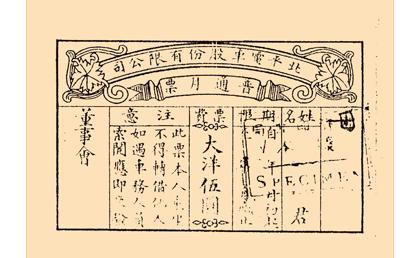 北平電車股份有限公司
普通月票
姓名
君
期
自
SPECIMEN
票費
大洋伍圓
注意
此票本人乘坐
不得轉借他人
如遇車務人員
索閱應即
董事會